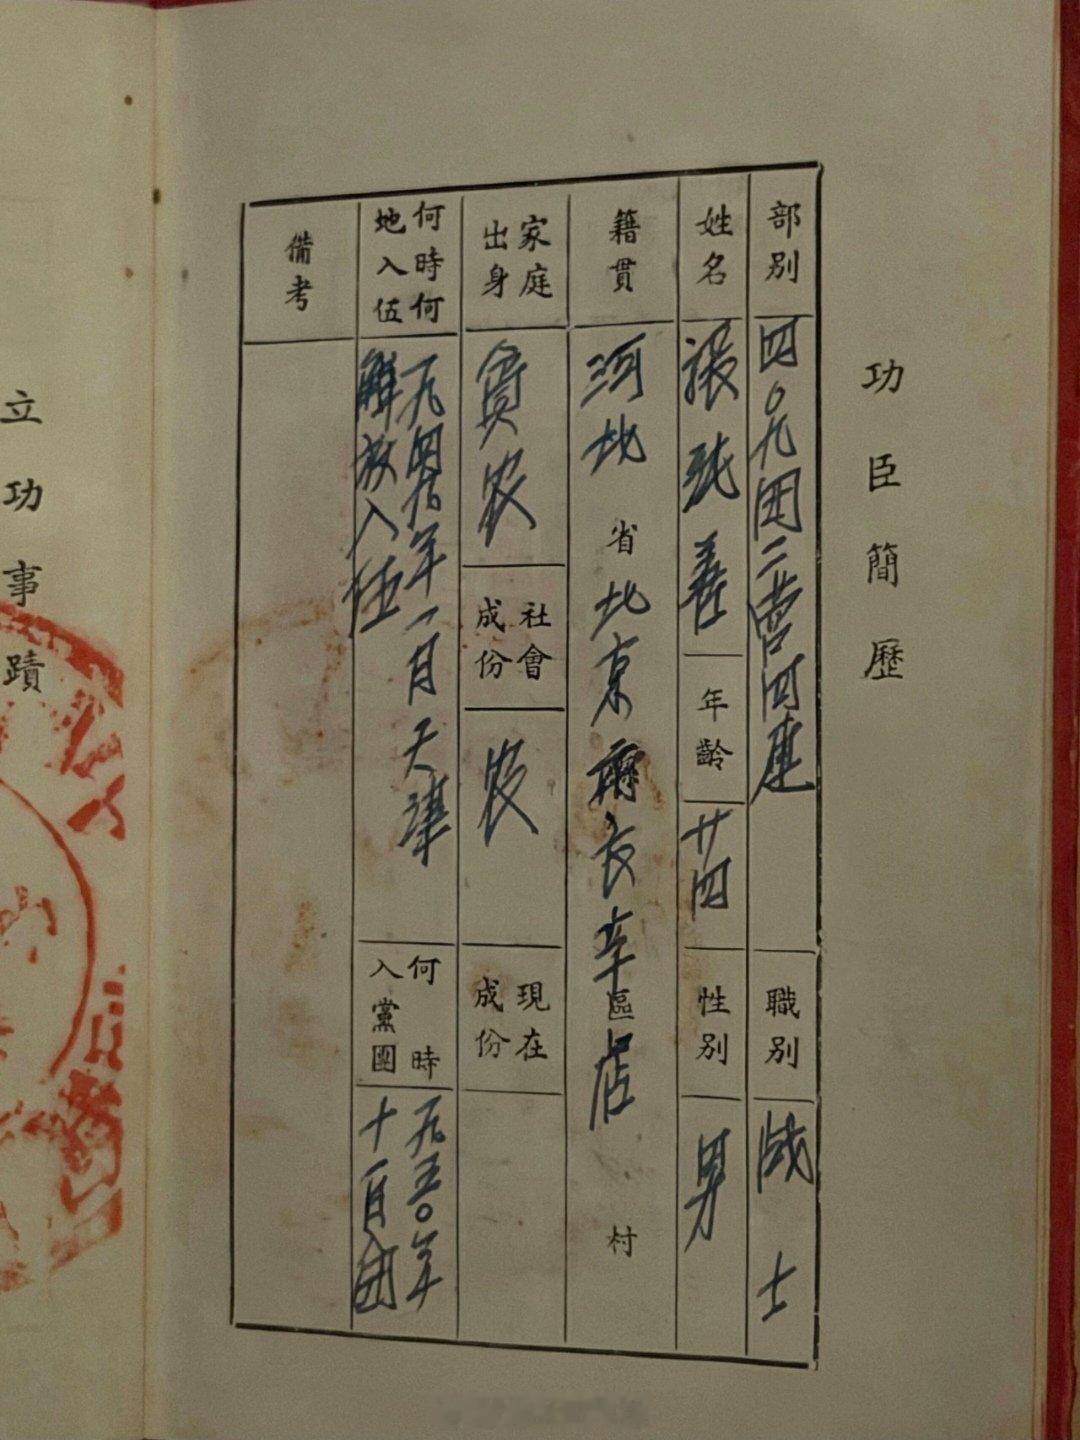 功臣簡歷
部別
四〇九団二营四連
職別
战士
姓名
張 善
年齡
廿四
性別
男
籍貫
河北省北京 長辛區店 村
家庭出身
貧农
社會成份
农
現在成份
何時何地入伍
一九四九年一月天津
解放入伍
何時入黨團
一九五〇年
十一月入团
備考
立功事蹟